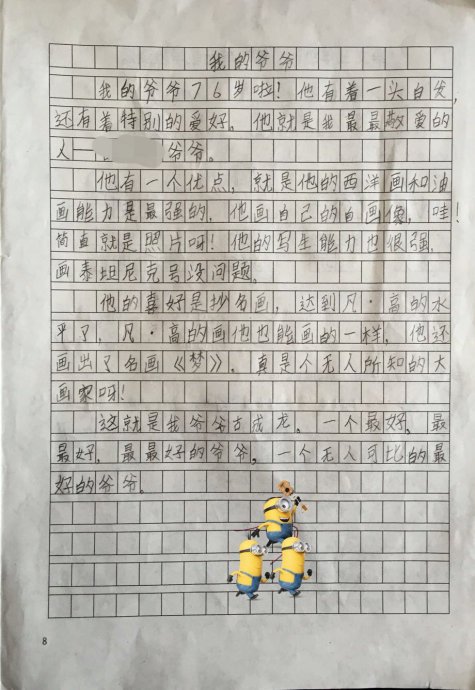 我的爷爷
我的爷爷76岁啦!他有着一头白发,
还有着特别的爱好。他就是我最最敬爱的
人一爷爷。
他有一个优点,就是他的西洋画和油
画能力是最强的,他画自己的自画像,哇!
简直就是照片呀!他的写生能力也很强,
画泰坦尼克号没问题。
他的喜好是抄名画,达到凡·高的水
平了,凡·高的画他也能画的一样,他还
画出了名画《梦》,真是个无人所知的大
画家呀!
这就是我爷爷古成龙。一个最好,最
最好,最最好的爷爷,一个无人可比的最
好的爷爷。
8